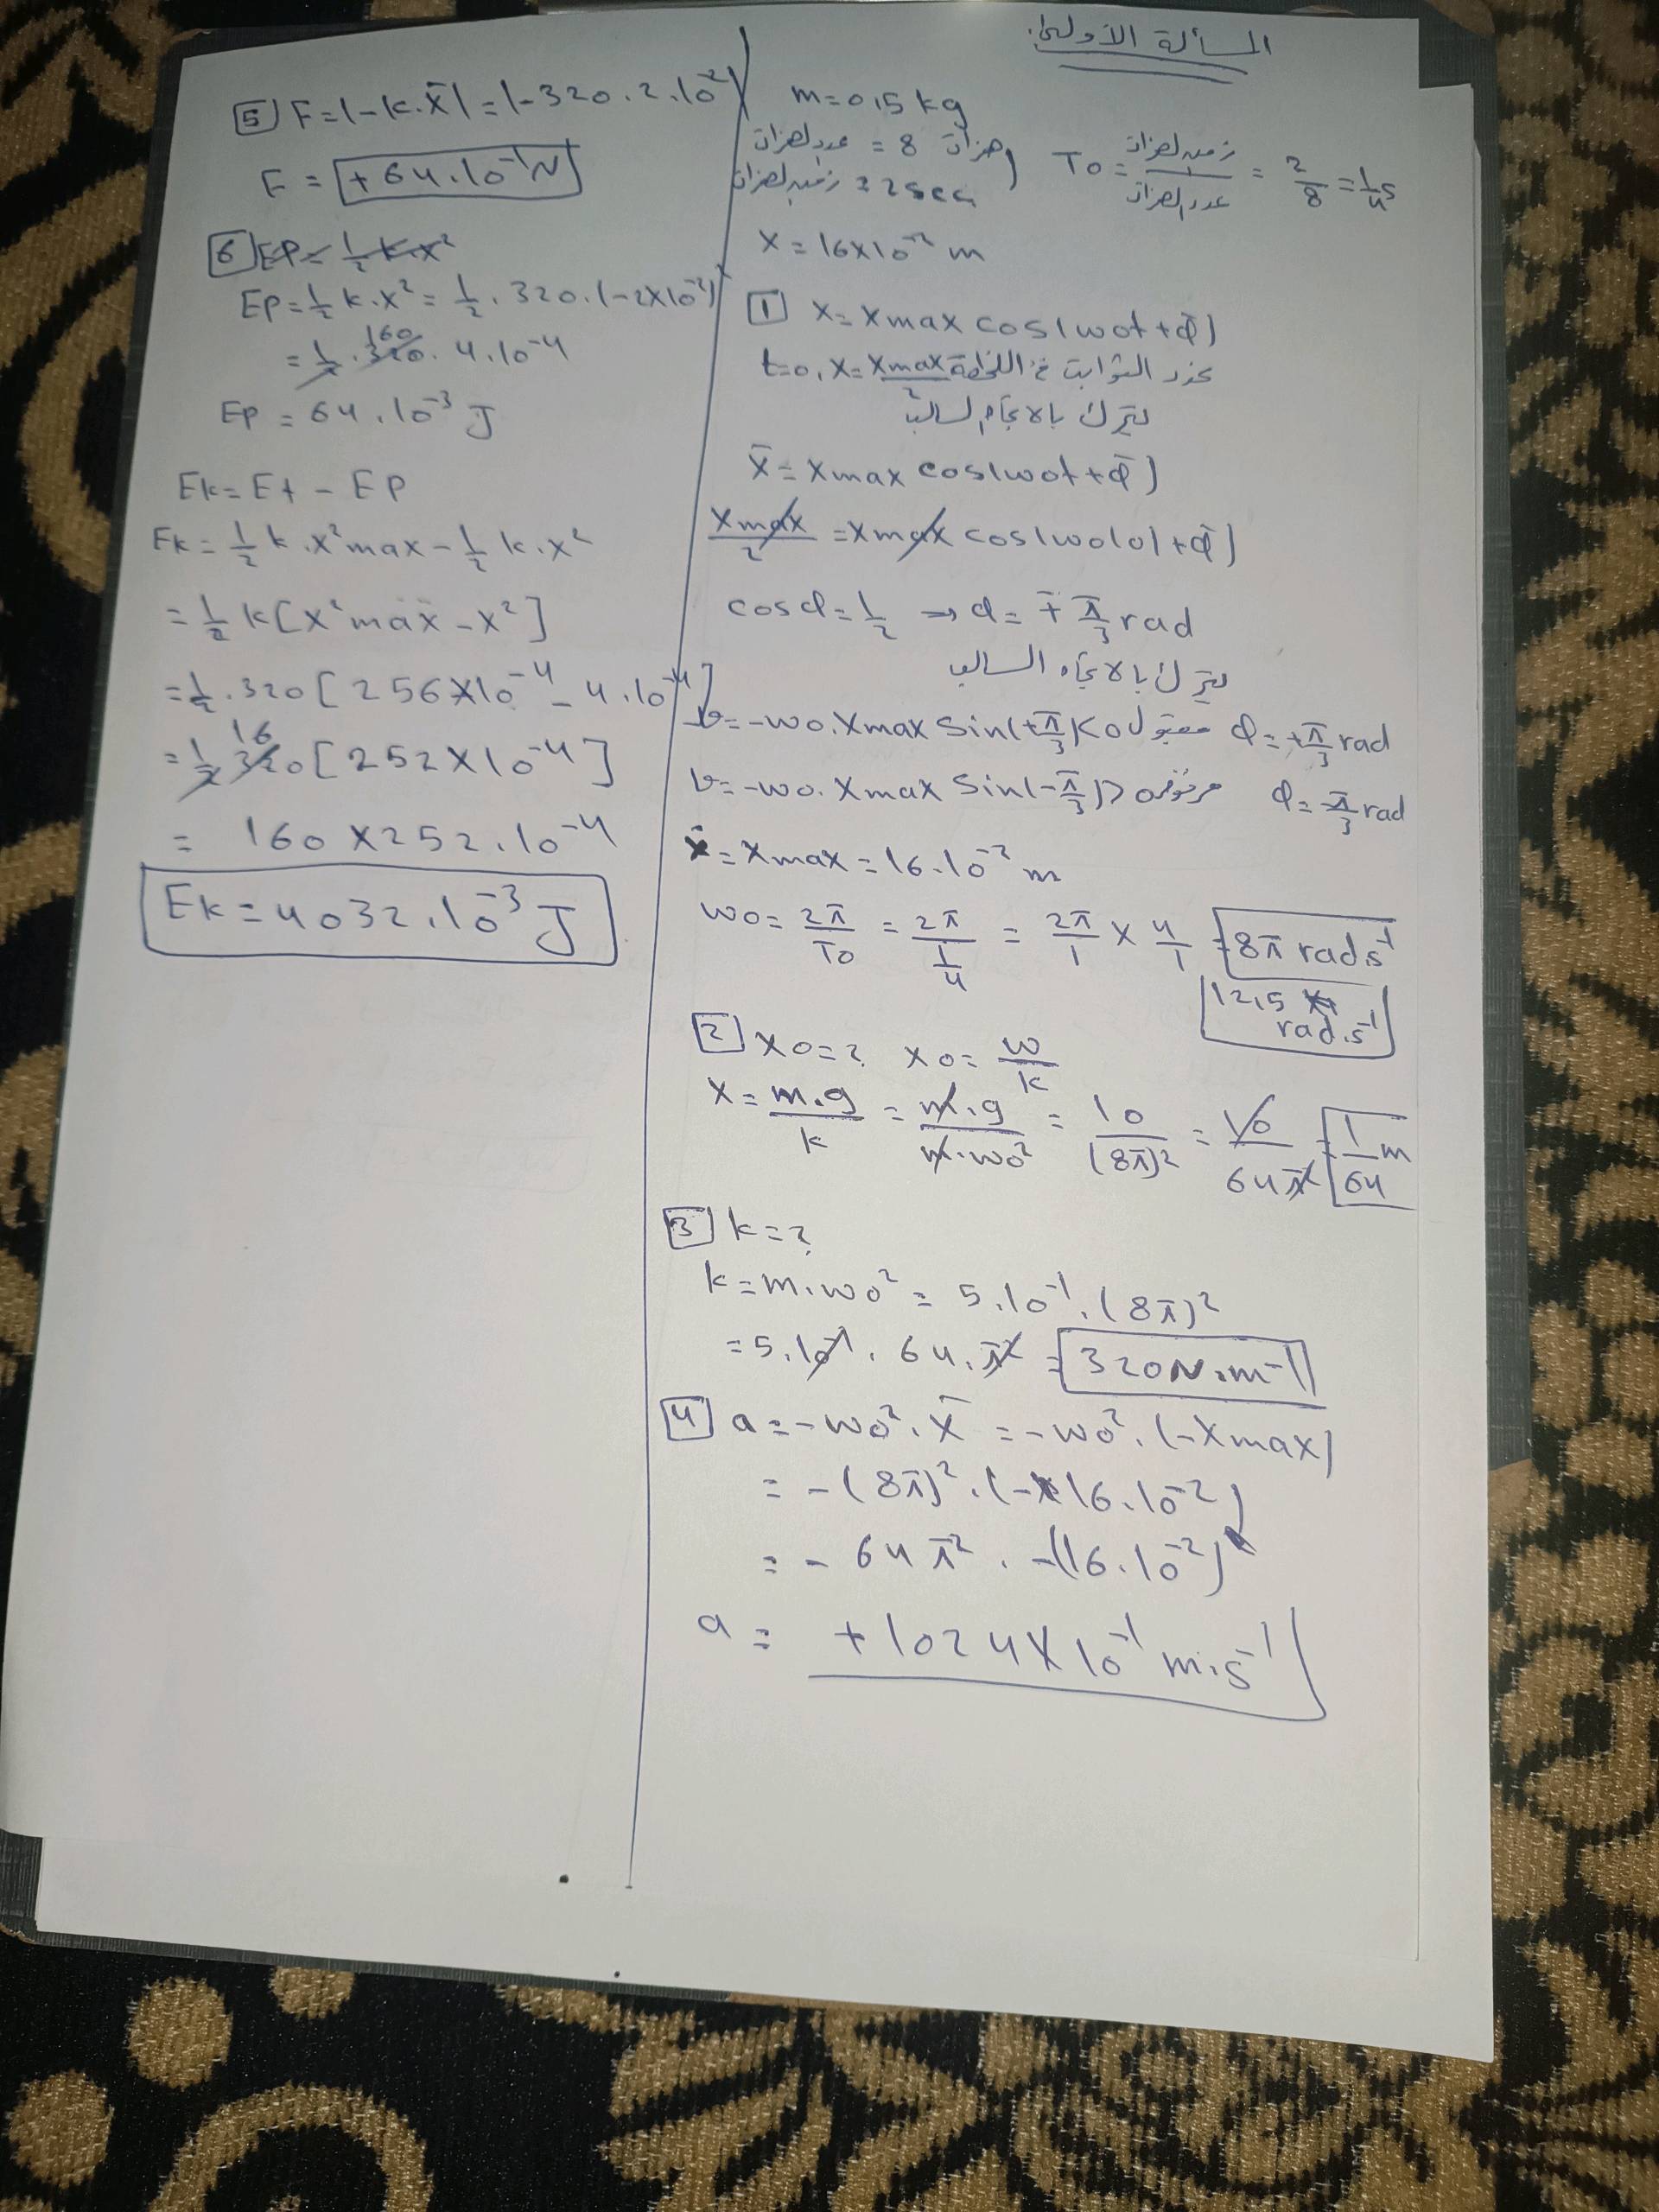 المسألة الأولى:
m=0,5 kg
هزات 8 = عدد الهزات
زمن الهزات = 2 sec
T0 = زمن الهزات / عدد الهزات = 2/8 = 1/4 s
x = 16×10⁻² m
[1] x = xmax cos(ω0t + φ̄)
نحدد الثوابت في اللحظة t=0, x= xmax/2
يتحرك بالاتجاه السالب
x̄ = xmax cos(ω0t + φ̄)
xmax/2 = xmax cos(ω0(0) + φ̄)
cosφ = 1/2 ⇒ φ = ∓ π/3 rad
يتحرك بالاتجاه السالب
v = -ω0.xmax sin(+π/3) < 0 مقبول φ = +π/3 rad
v = -ω0. xmax sin(-π/3) > 0 مرفوض φ = -π/3 rad
x = xmax = 16.10⁻² m
ω0 = 2π/T0 = 2π/(1/4) = 2π/1 × 4/1 = 8π rad.s⁻¹
rad.s⁻¹
[2] x0 = ? x0 = w/k
x = m.g/k = m.g/m.ω0² = 10/(8π)² = 10/64π² = 1/64 m
[3] k = ?
k = m.ω0² = 5.10⁻¹.(8π)²
= 5.10⁻¹. 64.π² = 320 N.m⁻¹
[4] a = -ω0².x̄ = -ω0².(-xmax)
= -(8π)².(-16.10⁻²)
= - 64π² . -(16.10⁻²)
a = +1024×10⁻¹ m.s⁻¹
[5] F = |-k.x̄| = |-320.2.10⁻²|
F = +64.10⁻¹ N
[6] EP = 1/2 k.x²
Ep = 1/2 k.x² = 1/2 . 320.(-2×10⁻²)²
= 1/2 . 320 160 . 4.10⁻⁴
Ep = 64.10⁻³ J
Ek = Et - EP
Ek = 1/2 k.x²max - 1/2 k.x²
= 1/2 k[x²max - x²]
= 1/2 .320 [256×10⁻⁴ - 4.10⁻⁴]
= 1/2 320 16 [252×10⁻⁴]
= 160×252.10⁻⁴
Ek = 4032.10⁻³ J